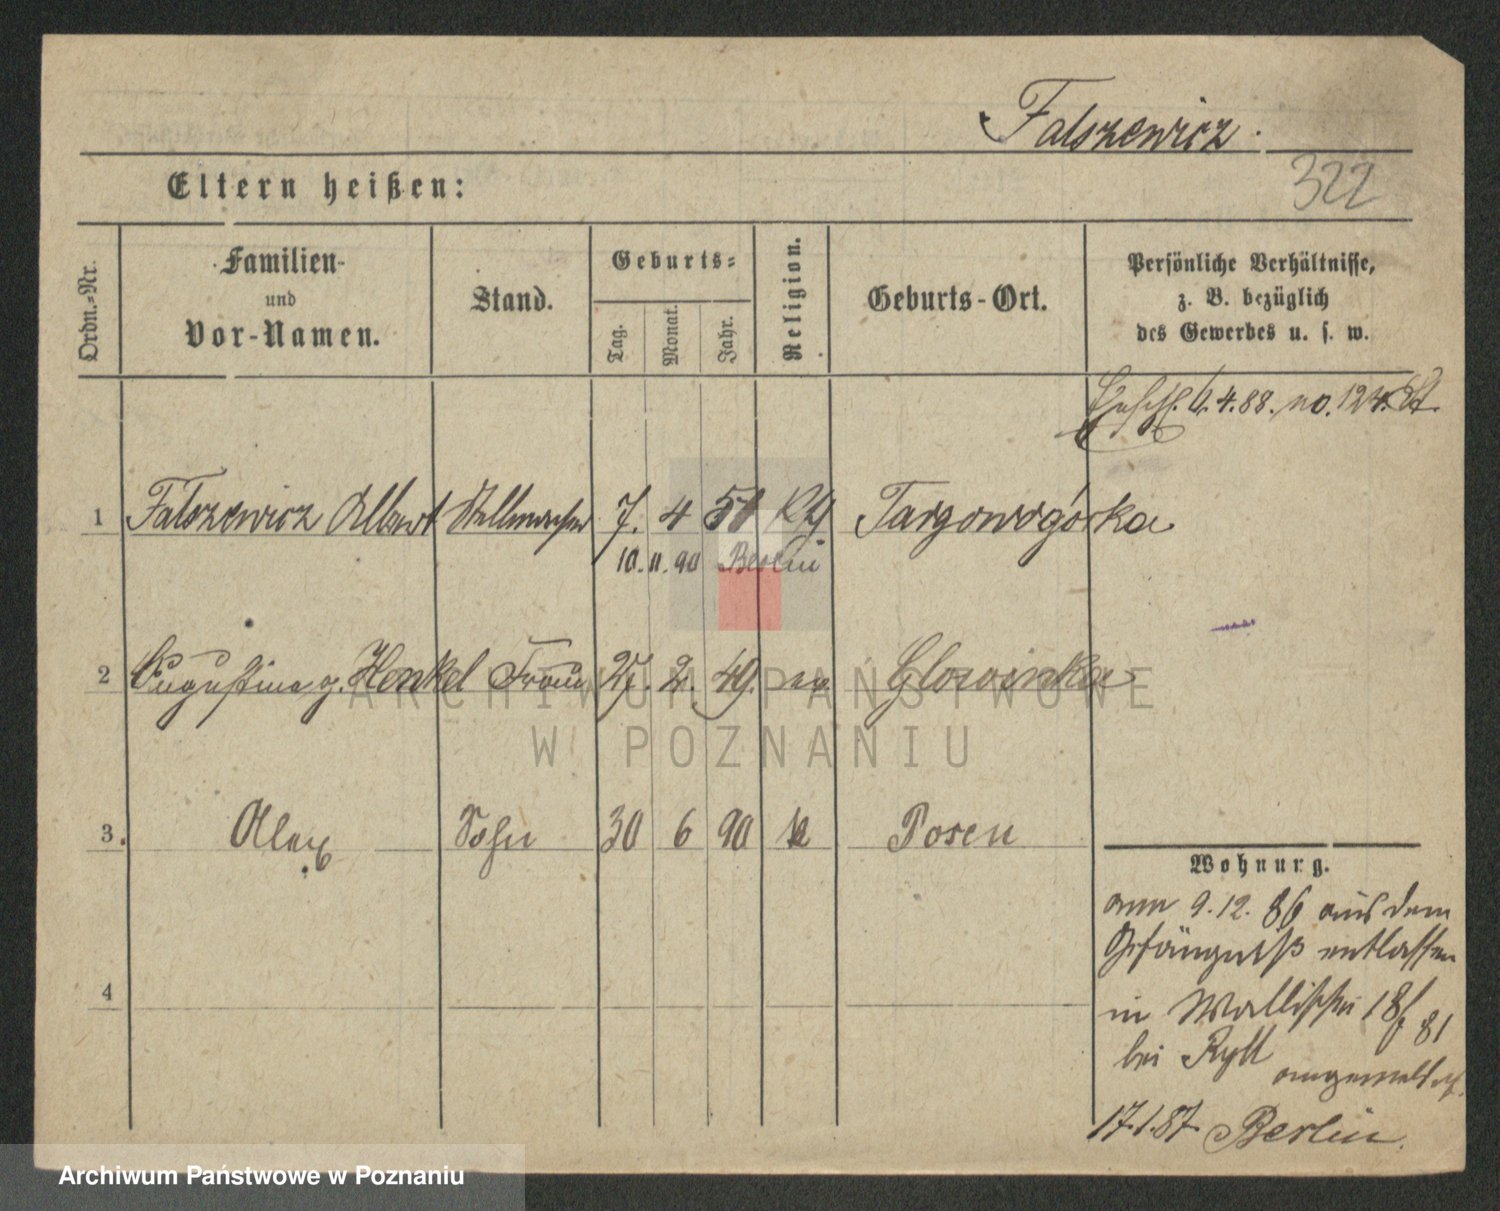 Falszewicz.
322
Eltern heißen:
Ordn.-Nr.
Familien-
und
Vor-Namen.
Stand.
Geburts-
Tag.
Monat.
Jahr.
Religion.
Geburts-Ort.
Persönliche Verhältnisse,
z. B. bezüglich
des Gewerbes u. s. w.
6.4.88. no. 124.
1 Falszewicz Albert Stellmacher 7. 4 51 Targowogórka
10. 11. 90 Berlin
2 Augustine g. Henkel Frau 27. 2. 49. Glowinka
ARCHIWUM PAŃSTWOWE
W POZNANIU
3. Alex Sohn 30 6 90 k Posen
4
Wohnung.
am 9.12. 86 aus dem
Gefängniß entlassen
in Wallischei 18/81
bei Ryll
angemeldet.
17.1.87. Berlin.
Archiwum Państwowe w Poznaniu